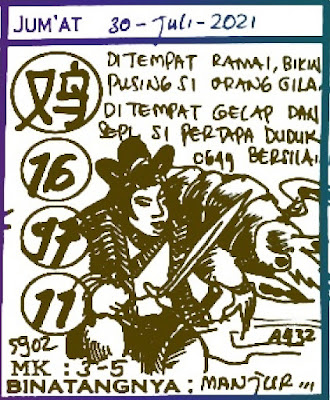 JUM'AT 30-Juli-2021
DI TEMPAT RAMAI, BIKIN
PUSING SI ORANG GILA.
DI TEMPAT GELAP DAN
SEPI, SI PERTAPA DUDUK
BERSILA.
鸡
16
11
5902
A432
MK : 3-5
BINATANGNYA : MANJUR,,,